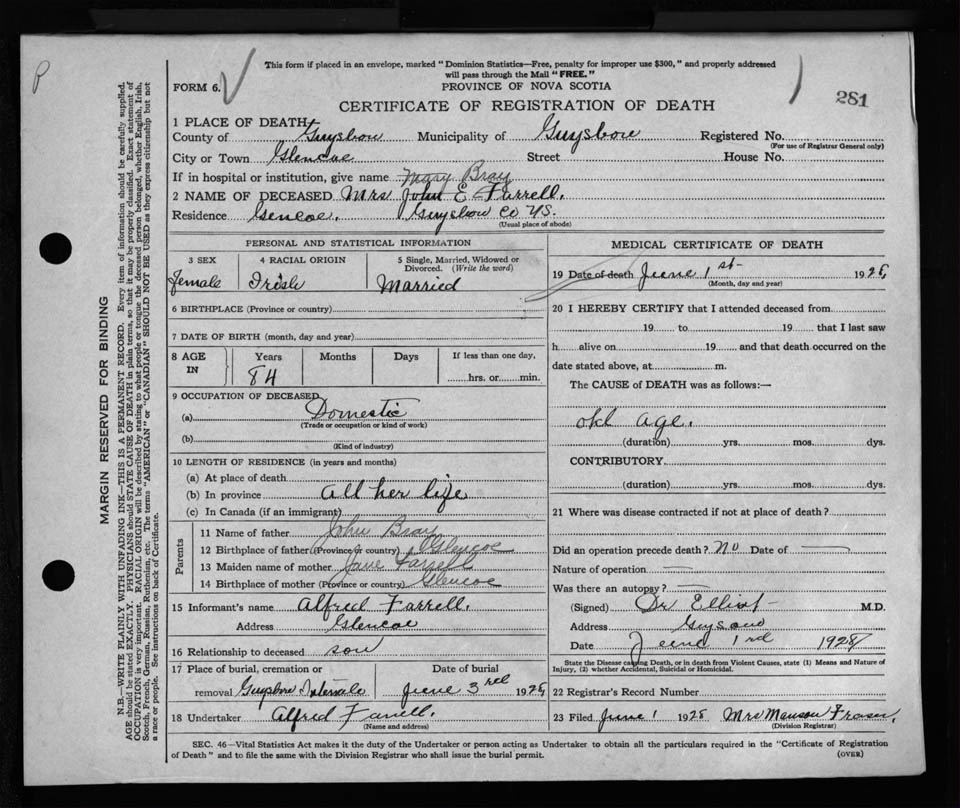 P
This form if placed in an envelope, marked "Dominion Statistics—Free, penalty for improper use $300," and properly addressed
will pass through the Mail "FREE."
FORM 6. PROVINCE OF NOVA SCOTIA
CERTIFICATE OF REGISTRATION OF DEATH 281
1 PLACE OF DEATH
County of Guysboro Municipality of Guysboro Registered No.
(For use of Registrar General only)
City or Town Glencoe Street House No.
If in hospital or institution, give name Mary Bray
2 NAME OF DECEASED Mrs John E Farrell.
Residence Gencoe. Guysboro Co NS.
(Usual place of abode)
PERSONAL AND STATISTICAL INFORMATION
3 SEX 4 RACIAL ORIGIN 5 Single, Married, Widowed or
Divorced. (Write the word)
Female Irish Married
6 BIRTHPLACE (Province or country)
7 DATE OF BIRTH (month, day and year)
8 AGE IN Years Months Days If less than one day,
84 hrs. or min.
9 OCCUPATION OF DECEASED
(a) Domestic
(Trade or occupation or kind of work)
(b)
(Kind of industry)
10 LENGTH OF RESIDENCE (in years and months)
(a) At place of death
(b) In province all her life
(c) In Canada (if an immigrant)
Parents
11 Name of father John Bray
12 Birthplace of father (Province or country) Glencoe
13 Maiden name of mother Jane Farrell
14 Birthplace of mother (Province or country) Glencoe
15 Informant's name Alfred Farrell.
Address Glencoe
16 Relationship to deceased son
17 Place of burial, cremation or Date of burial
removal Guysboro Intervale June 3rd 1928
18 Undertaker Alfred Farrell.
(Name and address)
MEDICAL CERTIFICATE OF DEATH
19 Date of death June 1st 1928
(Month, day and year)
20 I HEREBY CERTIFY that I attended deceased from
19 to 19 that I last saw
h alive on 19 and that death occurred on the
date stated above, at m.
The CAUSE of DEATH was as follows:—
old age.
(duration) yrs. mos. dys.
CONTRIBUTORY
(duration) yrs. mos. dys.
21 Where was disease contracted if not at place of death?
Did an operation precede death? No Date of
Nature of operation
Was there an autopsy?
(Signed) Dr Elliot M.D.
Address
Date June 1rd 1928
State the Disease causing Death, or in death from Violent Causes, state (1) Means and Nature of
Injury, (2) whether Accidental, Suicidal or Homicidal.
22 Registrar's Record Number
23 Filed June 1 1928 Mrs Manson Fraser.
(Division Registrar)
SEC. 46—Vital Statistics Act makes it the duty of the Undertaker or person acting as Undertaker to obtain all the particulars required in the "Certificate of Registration
of Death" and to file the same with the Division Registrar who shall issue the burial permit. (OVER)
MARGIN RESERVED FOR BINDING
N.B.—WRITE PLAINLY WITH UNFADING INK—THIS IS A PERMANENT RECORD. Every item of information should be carefully supplied.
AGE should be stated EXACTLY. PHYSICIANS should STATE CAUSE OF DEATH in plain terms, so that it may be properly classified. Exact statement of
OCCUPATION is very important. RACIAL ORIGIN will be described by stating to what people or tongue the deceased person belonged, whether English, Irish,
Scotch, French, German, Russian, Ruthenian, etc. The terms "AMERICAN" or "CANADIAN" SHOULD NOT BE USED as they express citizenship but not
a race or people. See instructions on back of Certificate.